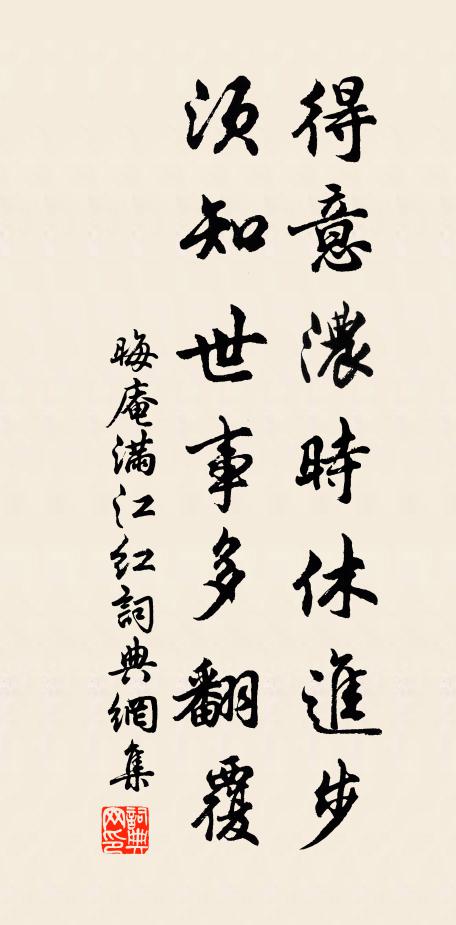 得意濃時休進步
須知世事多翻覆
晦庵滿江紅詞典網集
詞典網印